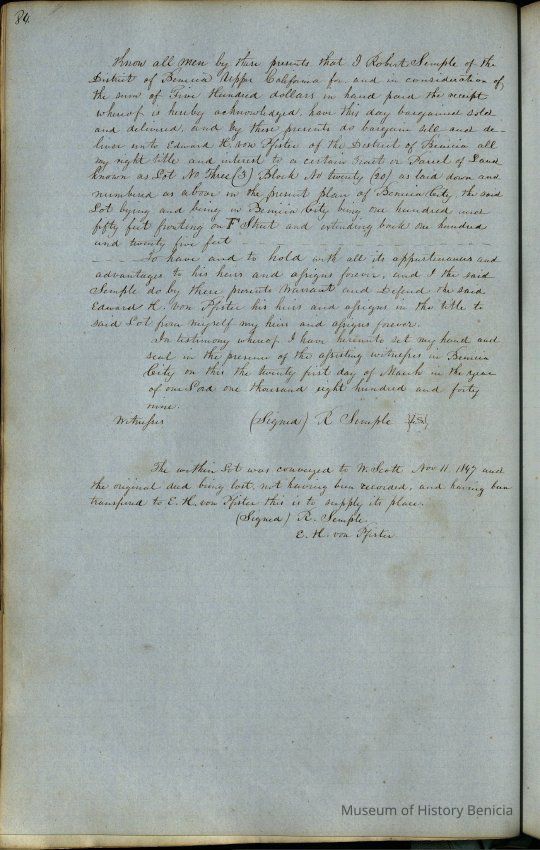 84.
Know all men by these presents that I Robert Semple of the
District of Benicia Upper California for and in consideration of
the sum of Five Hundred dollars in hand paid the receipt
whereof is hereby acknowledged, have this day bargained sold
and delivered, and by these presents do bargain sell and de-
liver unto Edward H. von Pfister of the District of Benicia all
my right title and interest to a certain tract or Parcel of Land
known as Lot No Three (3) Block No twenty (20) as laid down and
numbered as above in the present plan of Benicia City, the said
Lot lying and being in Benicia City being one hundred and
fifty feet fronting on F Street and extending back one hundred
and twenty five feet
To have and to hold with all its appurtenances and
advantages to his heirs and assigns forever, and I the said
Semple do by these presents Warrant and Defend the said
Edward H. von Pfister his heirs and assigns in the title to
said Lot from myself my heirs and assigns forever.
In testimony whereof I have hereunto set my hand and
seal in the presence of the assisting witnesses in Benicia
City on this the twenty first day of March in the year
of our Lord one thousand eight hundred and forty
nine.
Witnesses (Signed) R Semple
The within Lot was conveyed to W. Scott Nov 11, 1847 and
the original deed being lost, not having been recorded, and having been
transferred to E. H. von Pfister this is to supply its place.
(Signed) R. Semple
E. H. von Pfister
Museum of History Benicia